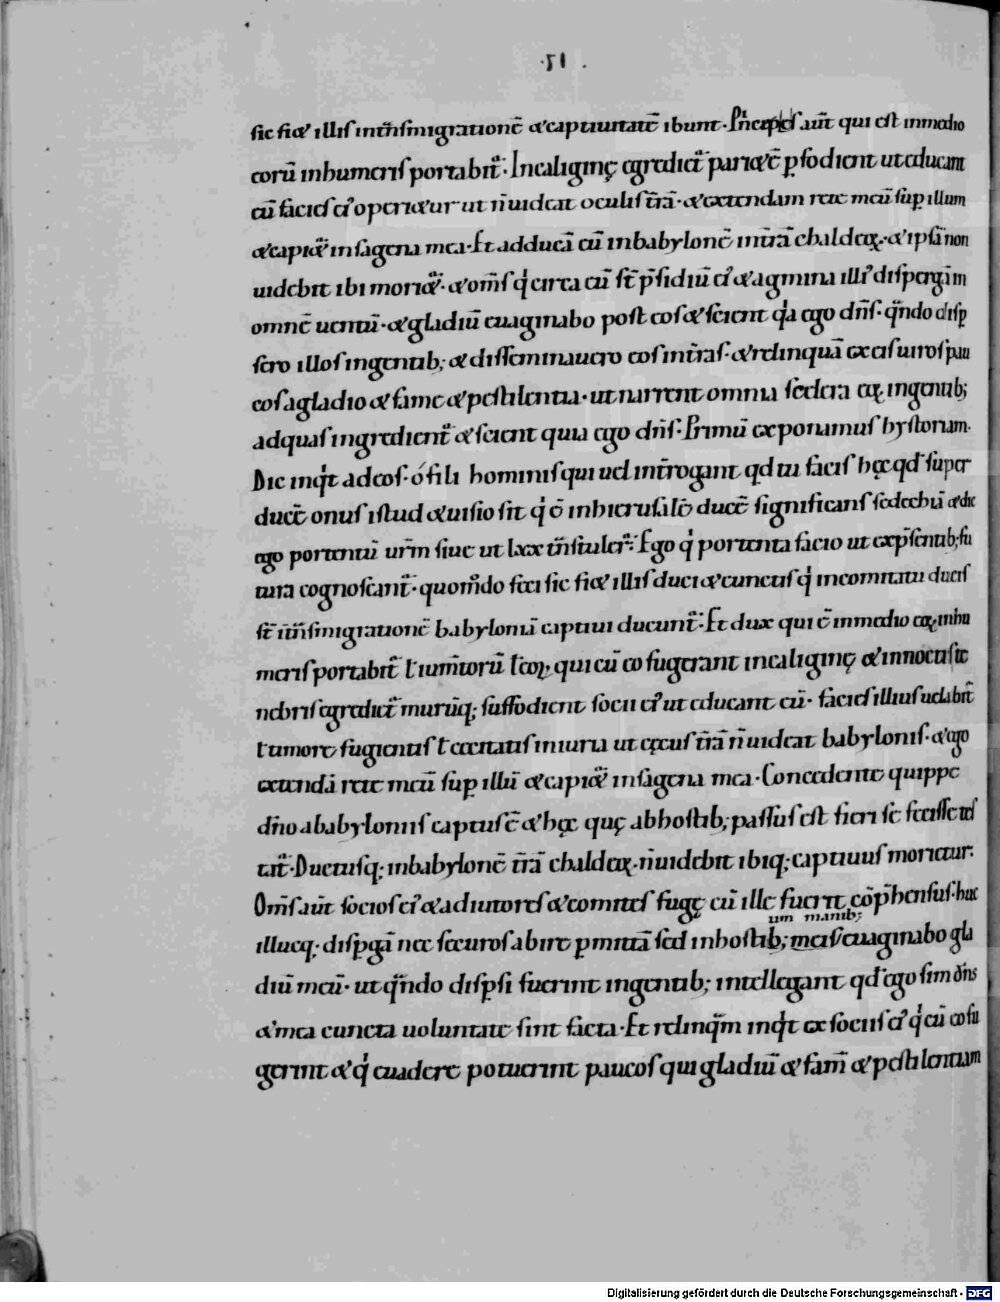 ·51·
sic fi& illis intrāsmigrationē & captiuitatē ibunt· Princeps aut̄ qui est inmedio
eorū inhumeris portabit̄· Incaliginę egrediet̄ pari&ē p̄fodient ut educant
eū facies ei᾿ operi&ur ut n̄uideat oculis t̄rā· & extendam rete meū sup illum
& capi&̄ insagena mea· Et adducā eū inbabylonē int̄rā chaldeoꝝ· & ipsā non
uidebit ibi mori&̄· & om̄s q̇ circa eū st̄ p̄sidiū ei᾿ & agmina illi᾿ dispergā in
omnē uentū· & gladiū euaginabo post eos & scient q̇a ego dn̄s· qn̄do disp
sero illos ingentib; & disseminauero eos int̄ras· & relinquā ex eis uiros pau
cos agladio & fame & pestilentia· ut narrent omnia scelera eoꝝ ingentib;
adquas ingredient̄ & scient quia ego dn̄s· Primū exponamus hystoriam·
Dic inq̇t adeos· ó fili hominis qui uel int̄rogant qd tu facis hęc qd super
ducē onus istud & uisio sit q̇ ē inhierusalē ducē significans sedechiā & dic
ego portentū ur̄m siue ut lxx tn̄stuler̄· Ego q̇ portenta facio ut exp̄sentib; fu
tura cognoscant̄· quom̄do feci sic fi& illis duci & cunctis q̇ incomitatu ducis
st̄ īn̄smigrationē babyloniā captiui ducunt̄· Et dux qui ē inmedio eoꝝ inhu
meris portabit̄ ł iumtorū ł eoꝝ qui cū eo fugerant incaliginę & innoctis te
nebris egrediet̄ murūq; suffodient socii ei᾿ ut educant eū· facies illius uelabit̄
ł timore fugientis ł cecitatis iniuria ut cęcus t̄rā n̄uideat babylonis· & ego
extendā rete meū sup illū & capi&̄ insagena mea· Concedente quippe
dn̄o ababyloniis captus ē & hęc quę abhostib; passus est fieri se fecisse tes
tat̄· Ductusq; inbabylonē t̄rā chaldeoꝝ n̄uidebit ibiq; captiuus morietur·
Om̄s aut̄ socios ei᾿ & adiutores & comites fugę cū ille fuerit cōp̄hensus· huc
um manib;
illucq; dispgā nec securos abire p̄mittā sed inhostib; meis euaginabo gla
diū meū· ut qn̄do dispsi fuerint ingentib; intellegant qd ego sim dn̄s
& mea cuncta uoluntate sint facta· Et relinqm̄ inq̇t ex sociis ei᾿ q̇ cū eo fu
gerint & q̇ euadere potuerint paucos qui gladiū & fam̄ & pestilentiam
Digitalisierung gefördert durch die Deutsche Forschungsgemeinschaft - DFG